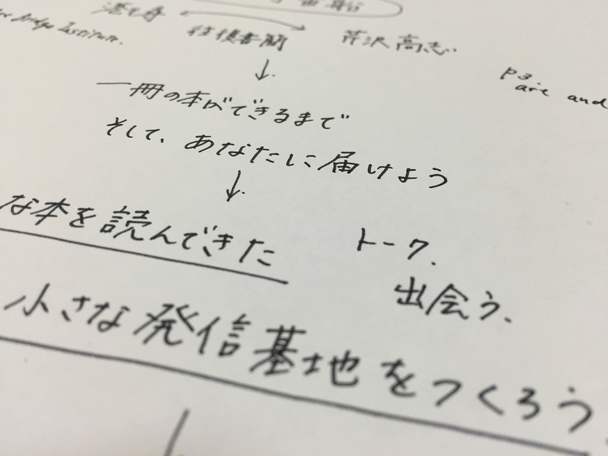 Institute.
信陵書閣 芹沢高志
p3
art and
↓
一冊の本ができるまで
そして、あなたに届けよう
↓
な本を読んできた トーク.
出会う、
小さな発信基地をつくろう.